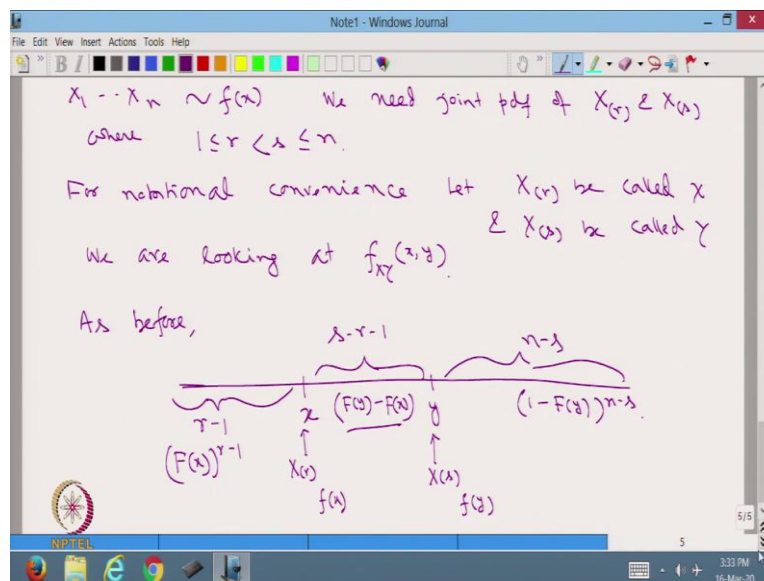 Note1 - Windows Journal
File Edit View Insert Actions Tools Help
B I
X₁ -- Xₙ ~ f(x) We need joint pdf of X₍ᵣ₎ & X₍ₛ₎
where 1 ≤ r < s ≤ n.
For notational convenience Let X₍ᵣ₎ be called X
& X₍ₛ₎ be called Y
We are looking at f_XY(x,y).
As before,
s-r-1 n-s
r-1 x (F(y)-F(x)) y (1-F(y))ⁿ⁻ˢ.
(F(x))ʳ⁻¹ X₍ᵣ₎ X₍ₛ₎
f(x) f(y)
5/5
NPTEL
5
3:33 PM
16-Mar-20